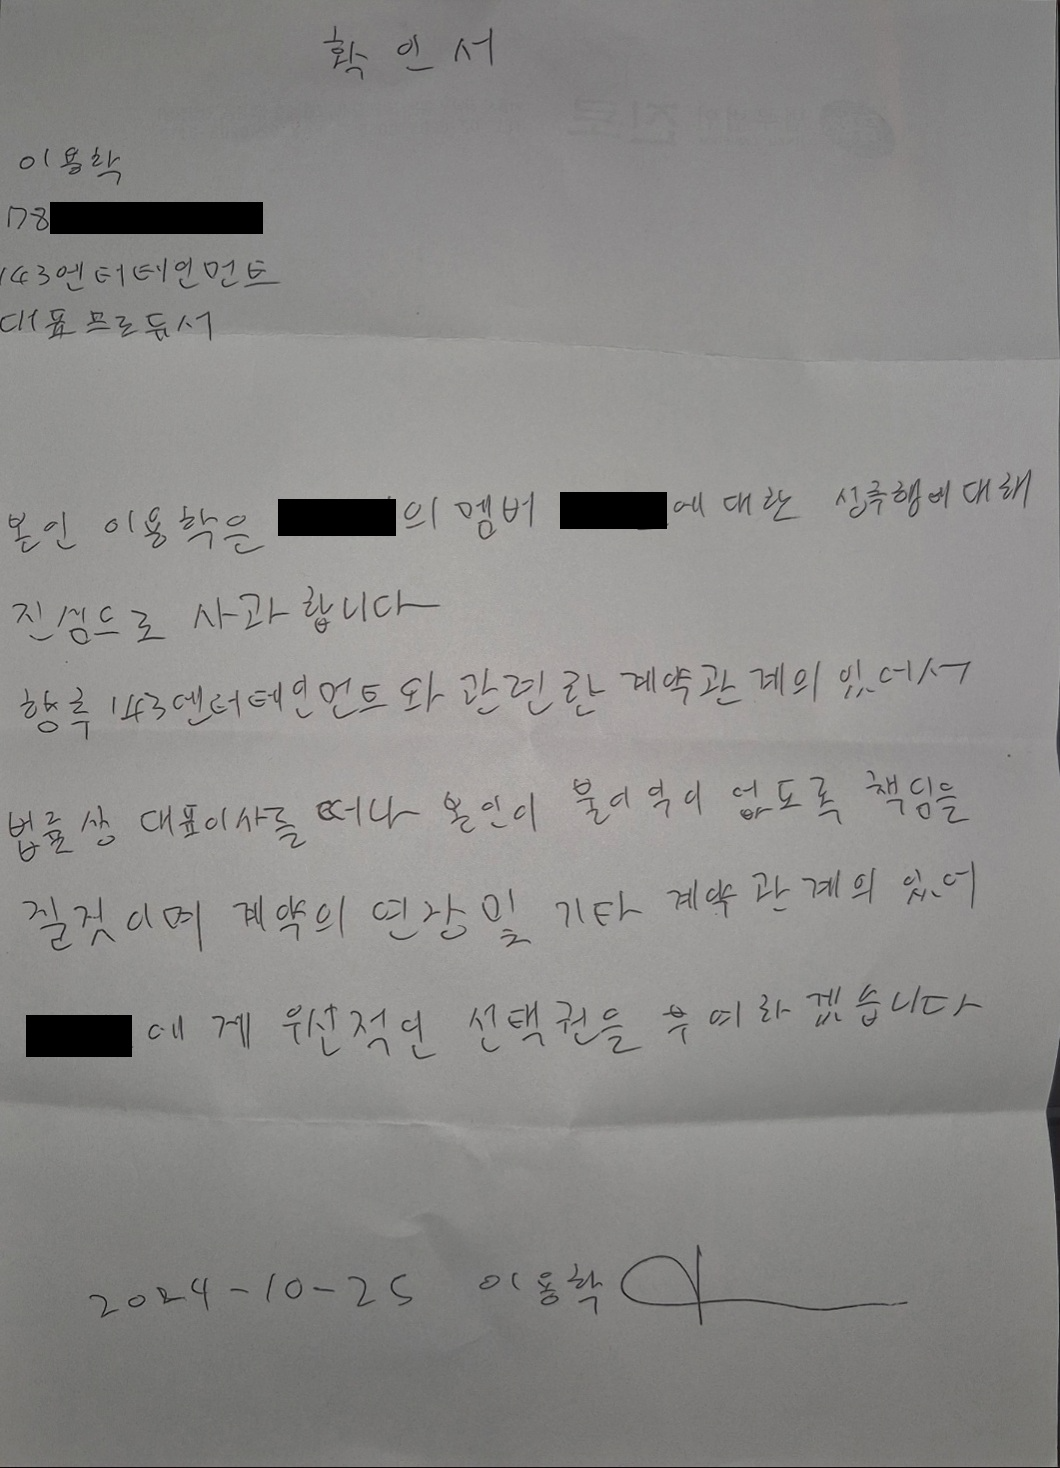 확인서
이용학
178
143엔터테인먼트
대표프로듀서
본인 이용학은 의 멤버 에 대한 성추행에 대해
진심으로 사과합니다
향후 143엔터테인먼트와 관련한 계약관계의 있어서
법률상 대표이사를 떠나 본인이 불이익이 없도록 책임을
질것이며 계약의 연장 및 기타 계약관계의 있어
에게 우선적인 선택권을 부여하겠습니다
2024-10-25 이용학